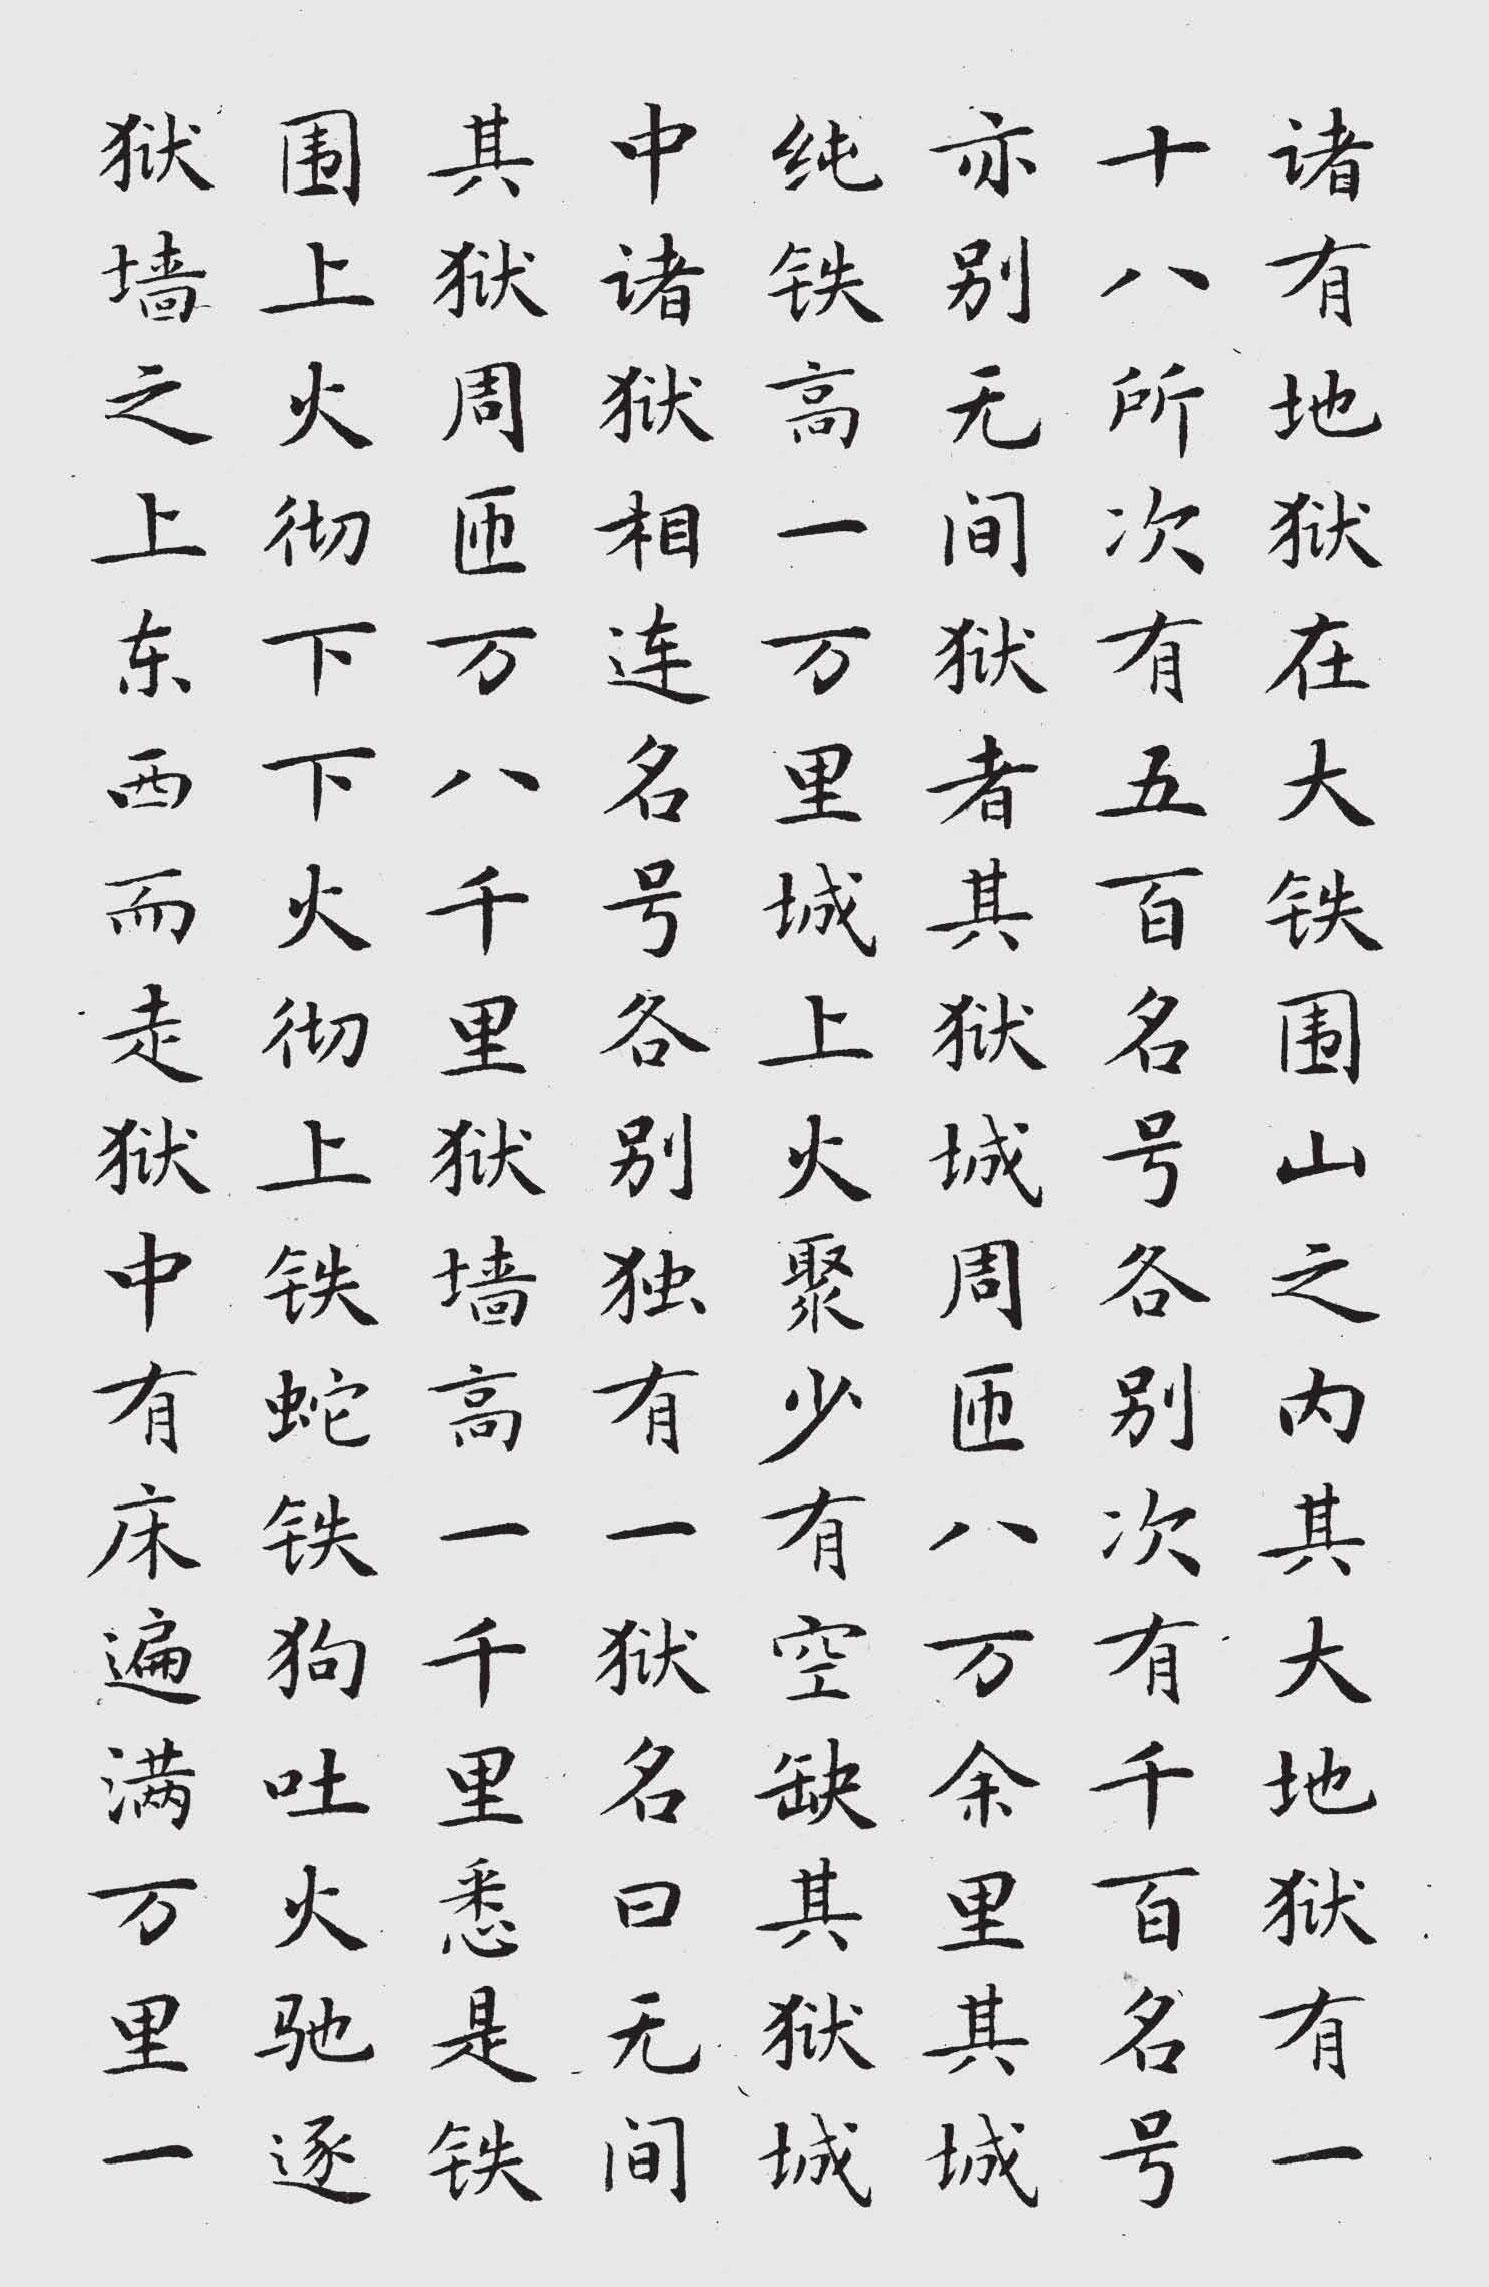 诸有地狱在大铁围山之内其大地狱有一
十八所次有五百名号各别次有千百名号
亦别无间狱者其狱城周匝八万余里其城
纯铁高一万里城上火聚少有空缺其狱城
中诸狱相连名号各别独有一狱名曰无间
其狱周匝万八千里狱墙高一千里悉是铁
围上火彻下下火彻上铁蛇铁狗吐火驰逐
狱墙之上东西而走狱中有床遍满万里一